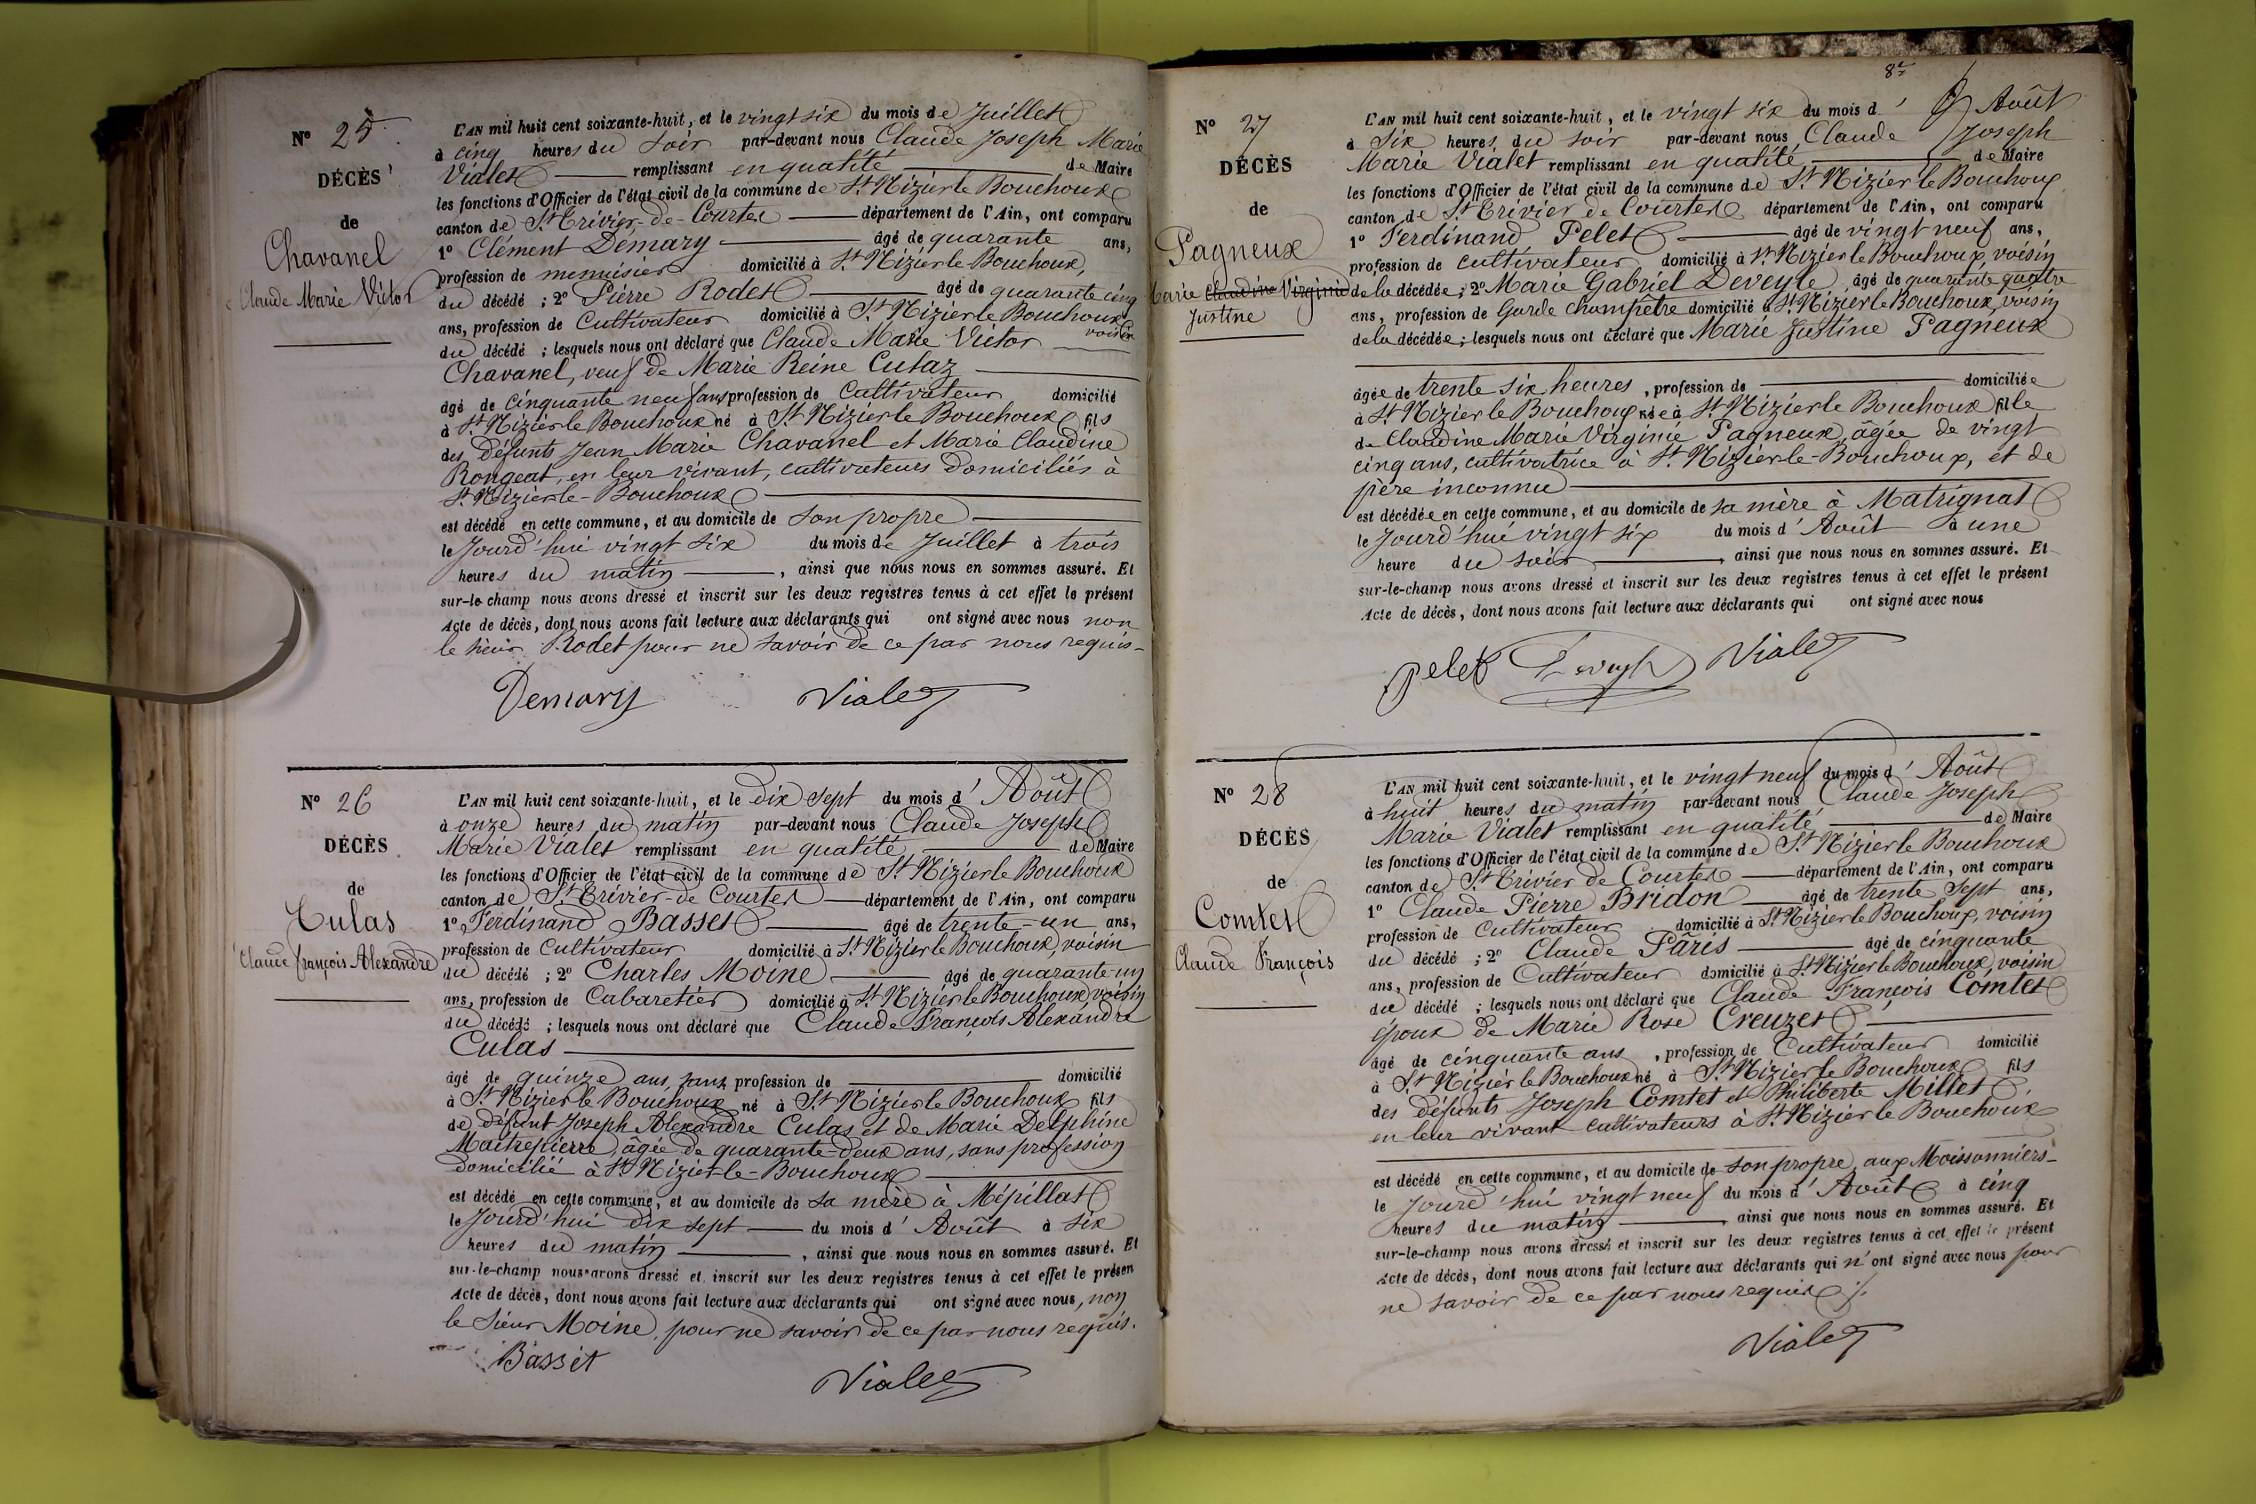 Nº 25
DÉCÈS
de
Chavanel
Claude Marie Victor
L'AN mil huit cent soixante-huit, et le vingt six du mois de Juillet
à cinq heures du soir par-devant nous Claude Joseph Marie
Vialet remplissant en qualité de Maire
les fonctions d'Officier de l'état civil de la commune de St Nizier le Bouchoux
canton de St Trivier-de-Courtes département de l'Ain, ont comparu
1º Clément Demary âgé de quarante ans,
profession de menuisier domicilié à St Nizier le Bouchoux,
du décédé ; 2º Pierre Rodet âgé de quarante cinq
ans, profession de Cultivateur domicilié à St Nizier le Bouchoux
voisin
du décédé ; lesquels nous ont déclaré que Claude Marie Victor
Chavanel, veuf de Marie Reine Cutaz
âgé de cinquante neuf ans profession de Cultivateur domicilié
à St Nizier le Bouchoux né à St Nizier le Bouchoux fils
des défunts Jean Marie Chavanel et Marie Claudine
Rongeat, en leur vivant, cultivateurs domiciliés à
St Nizier-le-Bouchoux
est décédé en cette commune, et au domicile de son propre
le Jourd'hui vingt six du mois de Juillet à trois
heures du matin, ainsi que nous nous en sommes assuré. Et
sur-le-champ nous avons dressé et inscrit sur les deux registres tenus à cet effet le présent
Acte de décès, dont nous avons fait lecture aux déclarants qui ont signé avec nous non
le sieur Rodet pour ne savoir de ce par nous requis-
Demary Vialet
Nº 26
DÉCÈS
de
Culas
Claude François Alexandre
L'AN mil huit cent soixante-huit, et le dix sept du mois d'Août
à onze heures du matin par-devant nous Claude Joseph
Marie Vialet remplissant en qualité de Maire
les fonctions d'Officier de l'état civil de la commune de St Nizier le Bouchoux
canton de St Trivier-de-Courtes département de l'Ain, ont comparu
1º Ferdinand Basset âgé de trente-un ans,
profession de Cultivateur domicilié à St Nizier le Bouchoux, voisin
du décédé ; 2º Charles Moine âgé de quarante un
ans, profession de Cabaretier domicilié à St Nizier le Bouchoux, voisin
du décédé ; lesquels nous ont déclaré que Claude François Alexandre
Culas
âgé de quinze ans, sans profession de domicilié
à St Nizier le Bouchoux né à St Nizier le Bouchoux fils
de défunt Joseph Alexandre Culas et de Marie Delphine
Maitrepierre, âgée de quarante-deux ans, sans profession
domicilié à St Nizier-le-Bouchoux
est décédé en cette commune, et au domicile de sa mère à Mépillat
le Jourd'hui dix sept du mois d'Août à six
heures du matin, ainsi que nous nous en sommes assuré. Et
sur-le-champ nous avons dressé et inscrit sur les deux registres tenus à cet effet le présen
Acte de décès, dont nous avons fait lecture aux déclarants qui ont signé avec nous, non
le Sieur Moine, pour ne savoir de ce par nous requis.
Basset Vialet
8e
Nº 27
DÉCÈS
de
Pagneux
Marie Claudine Virginie
Justine
L'AN mil huit cent soixante-huit, et le vingt six du mois d'Août
à six heures du soir par-devant nous Claude Joseph
Marie Vialet remplissant en qualité de Maire
les fonctions d'Officier de l'état civil de la commune de St Nizier le Bouchoux
canton de St Trivier de Courtes département de l'Ain, ont comparu
1º Ferdinand Pelet âgé de vingt neuf ans,
profession de cultivateur domicilié à St Nizier le Bouchoux, voisin
de la décédée ; 2º Marie Gabriel Deveyle âgé de quarante quatre
ans, profession de Garde champêtre domicilié à St Nizier le Bouchoux, voisin
de la décédée ; lesquels nous ont déclaré que Marie Justine Pagneux
âgée de trente six heures, profession de domiciliée
à St Nizier le Bouchoux née à St Nizier le Bouchoux fille
de Claudine Marie Virginie Pagneux, âgée de vingt
cinq ans, cultivatrice à St Nizier-le-Bouchoux, et de
père inconnu
est décédée en cette commune, et au domicile de sa mère à Matrignat
le Jourd'hui vingt six du mois d'Août à une
heure du soir, ainsi que nous nous en sommes assuré. Et
sur-le-champ nous avons dressé et inscrit sur les deux registres tenus à cet effet le présent
Acte de décès, dont nous avons fait lecture aux déclarants qui ont signé avec nous
Pelet Deveyle Vialet
Nº 28
DÉCÈS
de
Comtet
Claude François
L'AN mil huit cent soixante-huit, et le vingt neuf du mois d'Août
à huit heures du matin par-devant nous Claude Joseph
Marie Vialet remplissant en qualité de Maire
les fonctions d'Officier de l'état civil de la commune de St Nizier le Bouchoux
canton de St Trivier de Courtes département de l'Ain, ont comparu
1º Claude Pierre Bridon âgé de trente sept ans,
profession de Cultivateur domicilié à St Nizier le Bouchoux, voisin
du décédé ; 2º Claude Pâris âgé de cinquante
ans, profession de Cultivateur domicilié à St Nizier le Bouchoux, voisin
du décédé ; lesquels nous ont déclaré que Claude François Comtet
époux de Marie Rose Creuzet
âgé de cinquante ans, profession de Cultivateur domicilié
à St Nizier le Bouchoux né à St Nizier le Bouchoux fils
des défunts Joseph Comtet et Philiberte Millet
en leur vivant cultivateurs à St Nizier le Bouchoux
est décédé en cette commune, et au domicile de son propre, aux Moissonniers-
le Jourd'hui vingt neuf du mois d'Août à cinq
heures du matin, ainsi que nous nous en sommes assuré. Et
sur-le-champ nous avons dressé et inscrit sur les deux registres tenus à cet effet le présent
Acte de décès, dont nous avons fait lecture aux déclarants qui n'ont signé avec nous pour
ne savoir de ce par nous requis ./.
Vialet